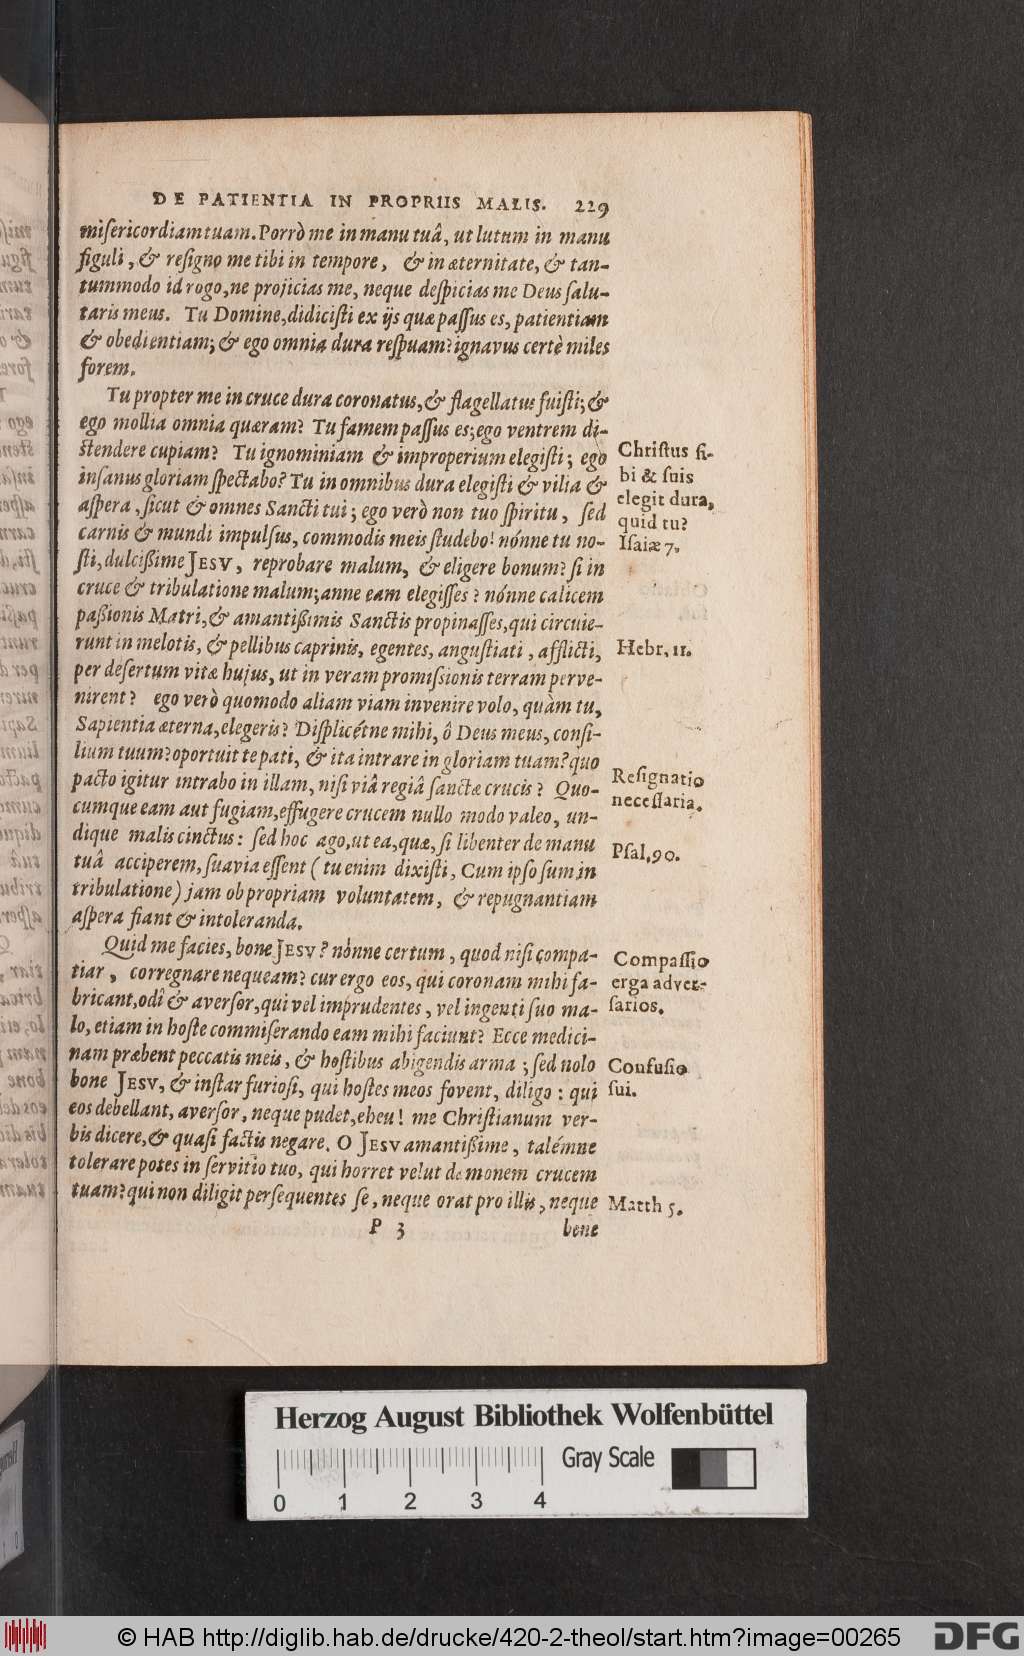 DE PATIENTIA IN PROPRIIS MALIS. 229
miſericordiam tuam. Porrò me in manu tuâ, ut lutum in manu
figuli, & reſigno me tibi in tempore, & in æternitate, & tan-
tummodo id rogo, ne projicias me, neque deſpicias me Deus ſalu-
taris meus. Tu Domine, didiciſti ex ijs quæ paſſus es, patientiam
& obedientiam; & ego omnia dura reſpuam? ignavus certè miles
forem.
Tu propter me in cruce dura coronatus, & flagellatus fuiſti; &
ego mollia omnia quæram? Tu famem paſſus es; ego ventrem di-
ſtendere cupiam? Tu ignominiam & improperium elegiſti; ego
inſanus gloriam ſpectabo? Tu in omnibus dura elegiſti & vilia &
aſpera, ſicut & omnes Sancti tui; ego verò non tuo ſpiritu, ſed
carnis & mundi impulſus, commodis meis ſtudebo! nónne tu no-
ſti, dulcißime JESV, reprobare malum, & eligere bonum? ſi in
cruce & tribulatione malum; anne eam elegiſſes? nónne calicem
paßionis Matri, & amantißimis Sanctis propinaſſes, qui circuie-
runt in melotis, & pellibus caprinis, egentes, anguſtiati, afflicti,
per deſertum vitæ hujus, ut in veram promiſſionis terram perve-
nirent? ego verò quomodo aliam viam invenire volo, quàm tu,
Sapientia æterna, elegeris? Diſplicétne mihi, ô Deus meus, conſi-
lium tuum? oportuit te pati, & ita intrare in gloriam tuam? quo
pacto igitur intrabo in illam, niſi viâ regiâ ſanctæ crucis? Quo-
cumque eam aut fugiam, effugere crucem nullo modo valeo, un-
dique malis cinctus: ſed hoc ago, ut ea, quæ, ſi libenter de manu
tuâ acciperem, ſuavia eſſent (tu enim dixiſti, Cum ipſo ſum in
tribulatione) jam ob propriam voluntatem, & repugnantiam
aſpera fiant & intoleranda.
Quid me facies, bone JESV? nónne certum, quod niſi compa-
tiar, corregnare nequeam? cur ergo eos, qui coronam mihi fa-
bricant, odî & averſor, qui vel imprudentes, vel ingenti ſuo ma-
lo, etiam in hoſte commiſerando eam mihi faciunt? Ecce medici-
nam præbent peccatis meis, & hoſtibus abigendis arma; ſed nolo
bone JESV, & inſtar furioſi, qui hoſtes meos fovent, diligo: qui
eos debellant, averſor, neque pudet, eheu! me Chriſtianum ver-
bis dicere, & quaſi factis negare. O JESV amantißime, talémne
tolerare potes in ſervitio tuo, qui horret velut dæmonem crucem
tuam? qui non diligit perſequentes ſe, neque orat pro illis, neque
P 3 bene
Chriſtus ſi-
bi & ſuis
elegit dura,
quid tu?
Iſaiæ 7.
Hebr. 11.
Reſignatio
neceſſaria.
Pſal. 90.
Compaſſio
erga adver-
ſarios.
Confuſio
ſui.
Matth 5.
Herzog August Bibliothek Wolfenbüttel
Gray Scale
0 1 2 3 4
© HAB http://diglib.hab.de/drucke/420-2-theol/start.htm?image=00265
DFG